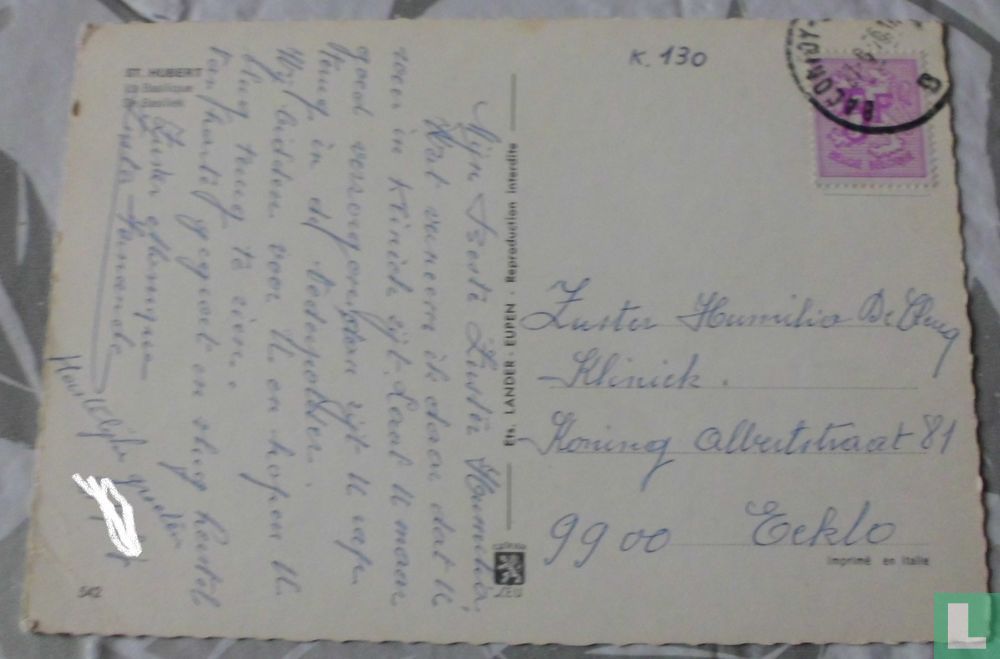 ST. HUBERT
La Basilique
De Basiliek
Mijn Beste Zuster Humilia,
Wat verneem ik daar dat U
weer in Kliniek zijt. Laat U maar
goed verzorgen, dan zijt U rap
terug in
Wij bidden voor U en hopen U
vlug terug te zien.
Van hartig gegroet en vlug herstel
Zuster Monique
Zuster Fernande
Hartelijke groeten
542
Ets. LANDER - EUPEN - Reproduction interdite
K. 130
Zuster Humilia De Clerq
Kliniek.
Koning Albertstraat 81
9900 Eeklo
imprimé en Italie